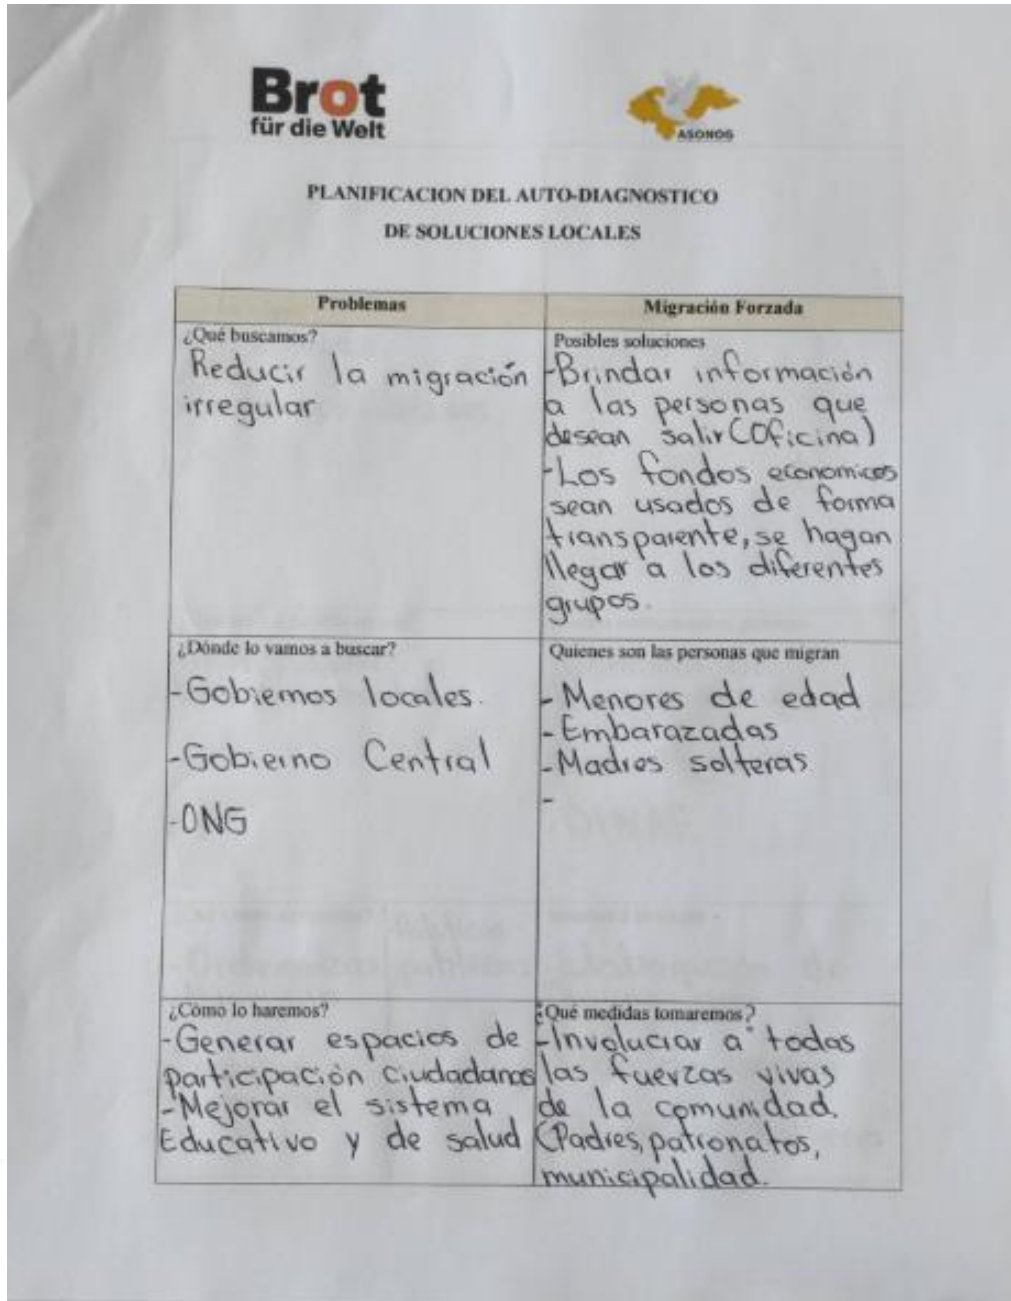 Brot
für die Welt
ASONOG
PLANIFICACION DEL AUTO-DIAGNOSTICO
DE SOLUCIONES LOCALES
Problemas
Migración Forzada
¿Qué buscamos?
Reducir la migración
irregular
Posibles soluciones
-Brindar información
a las personas que
desean salir (Oficina)
-Los fondos economicos
sean usados de forma
transparente, se hagan
llegar a los diferentes
grupos.
¿Dónde lo vamos a buscar?
-Gobiernos locales.
-Gobierno Central
-ONG
Quienes son las personas que migran
- Menores de edad
-Embarazadas
-Madres solteras
-
¿Cómo lo haremos?
-Generar espacios de
participación ciudadanas
-Mejorar el sistema
Educativo y de salud
¿Qué medidas tomaremos?
-Involucrar a todas
las fuerzas vivas
de la comunidad,
(Padres, patronatos,
municipalidad.